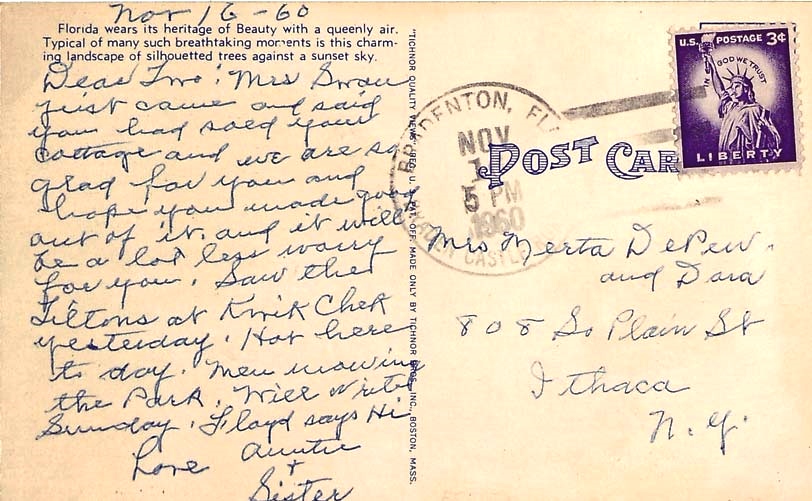 Nov 16-60
Florida wears its heritage of Beauty with a queenly air.
Typical of many such breathtaking moments is this charm-
ing landscape of silhouetted trees against a sunset sky.
Dear Two: Mrs Swan
just came and said
you had sold your
cottage and we are so
glad for you and
hope you made good
out of it, and it will
be a lot less worry
for you. Saw the
Tiltons at Kwik Chek
yesterday. Hot here
to day. Men mowing
the Park. Will write
Sunday. Floyd says Hi
Love Auntie
+
Sister
"TICHNOR QUALITY VIEWS," REG. U. S. PAT. OFF. MADE ONLY BY TICHNOR BROS., INC., BOSTON, MASS.
BRADENTON, FL
NOV
5 PM
1960
CASTLE
POST CAR
U.S. POSTAGE 3¢
IN GOD WE TRUST
LIBERTY
Mrs Nerta DePew.
and Dora
808 So Plain St
Ithaca
N.Y.